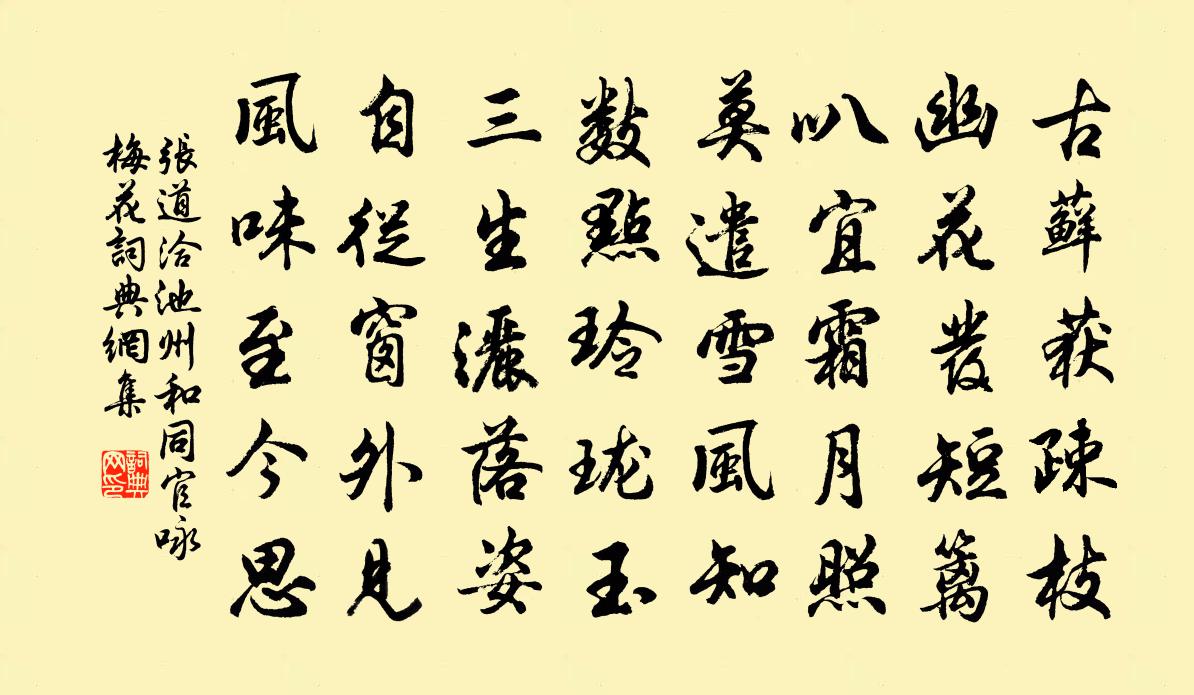 古蘚荻疎枝
幽花發短篱
叭宜霜月照
莫遣雪風知
數點玲珑玉
三生灑落姿
自從窗外見
風味至今思
張道洽池州和同官咏
梅花詞典網集
詞典网印